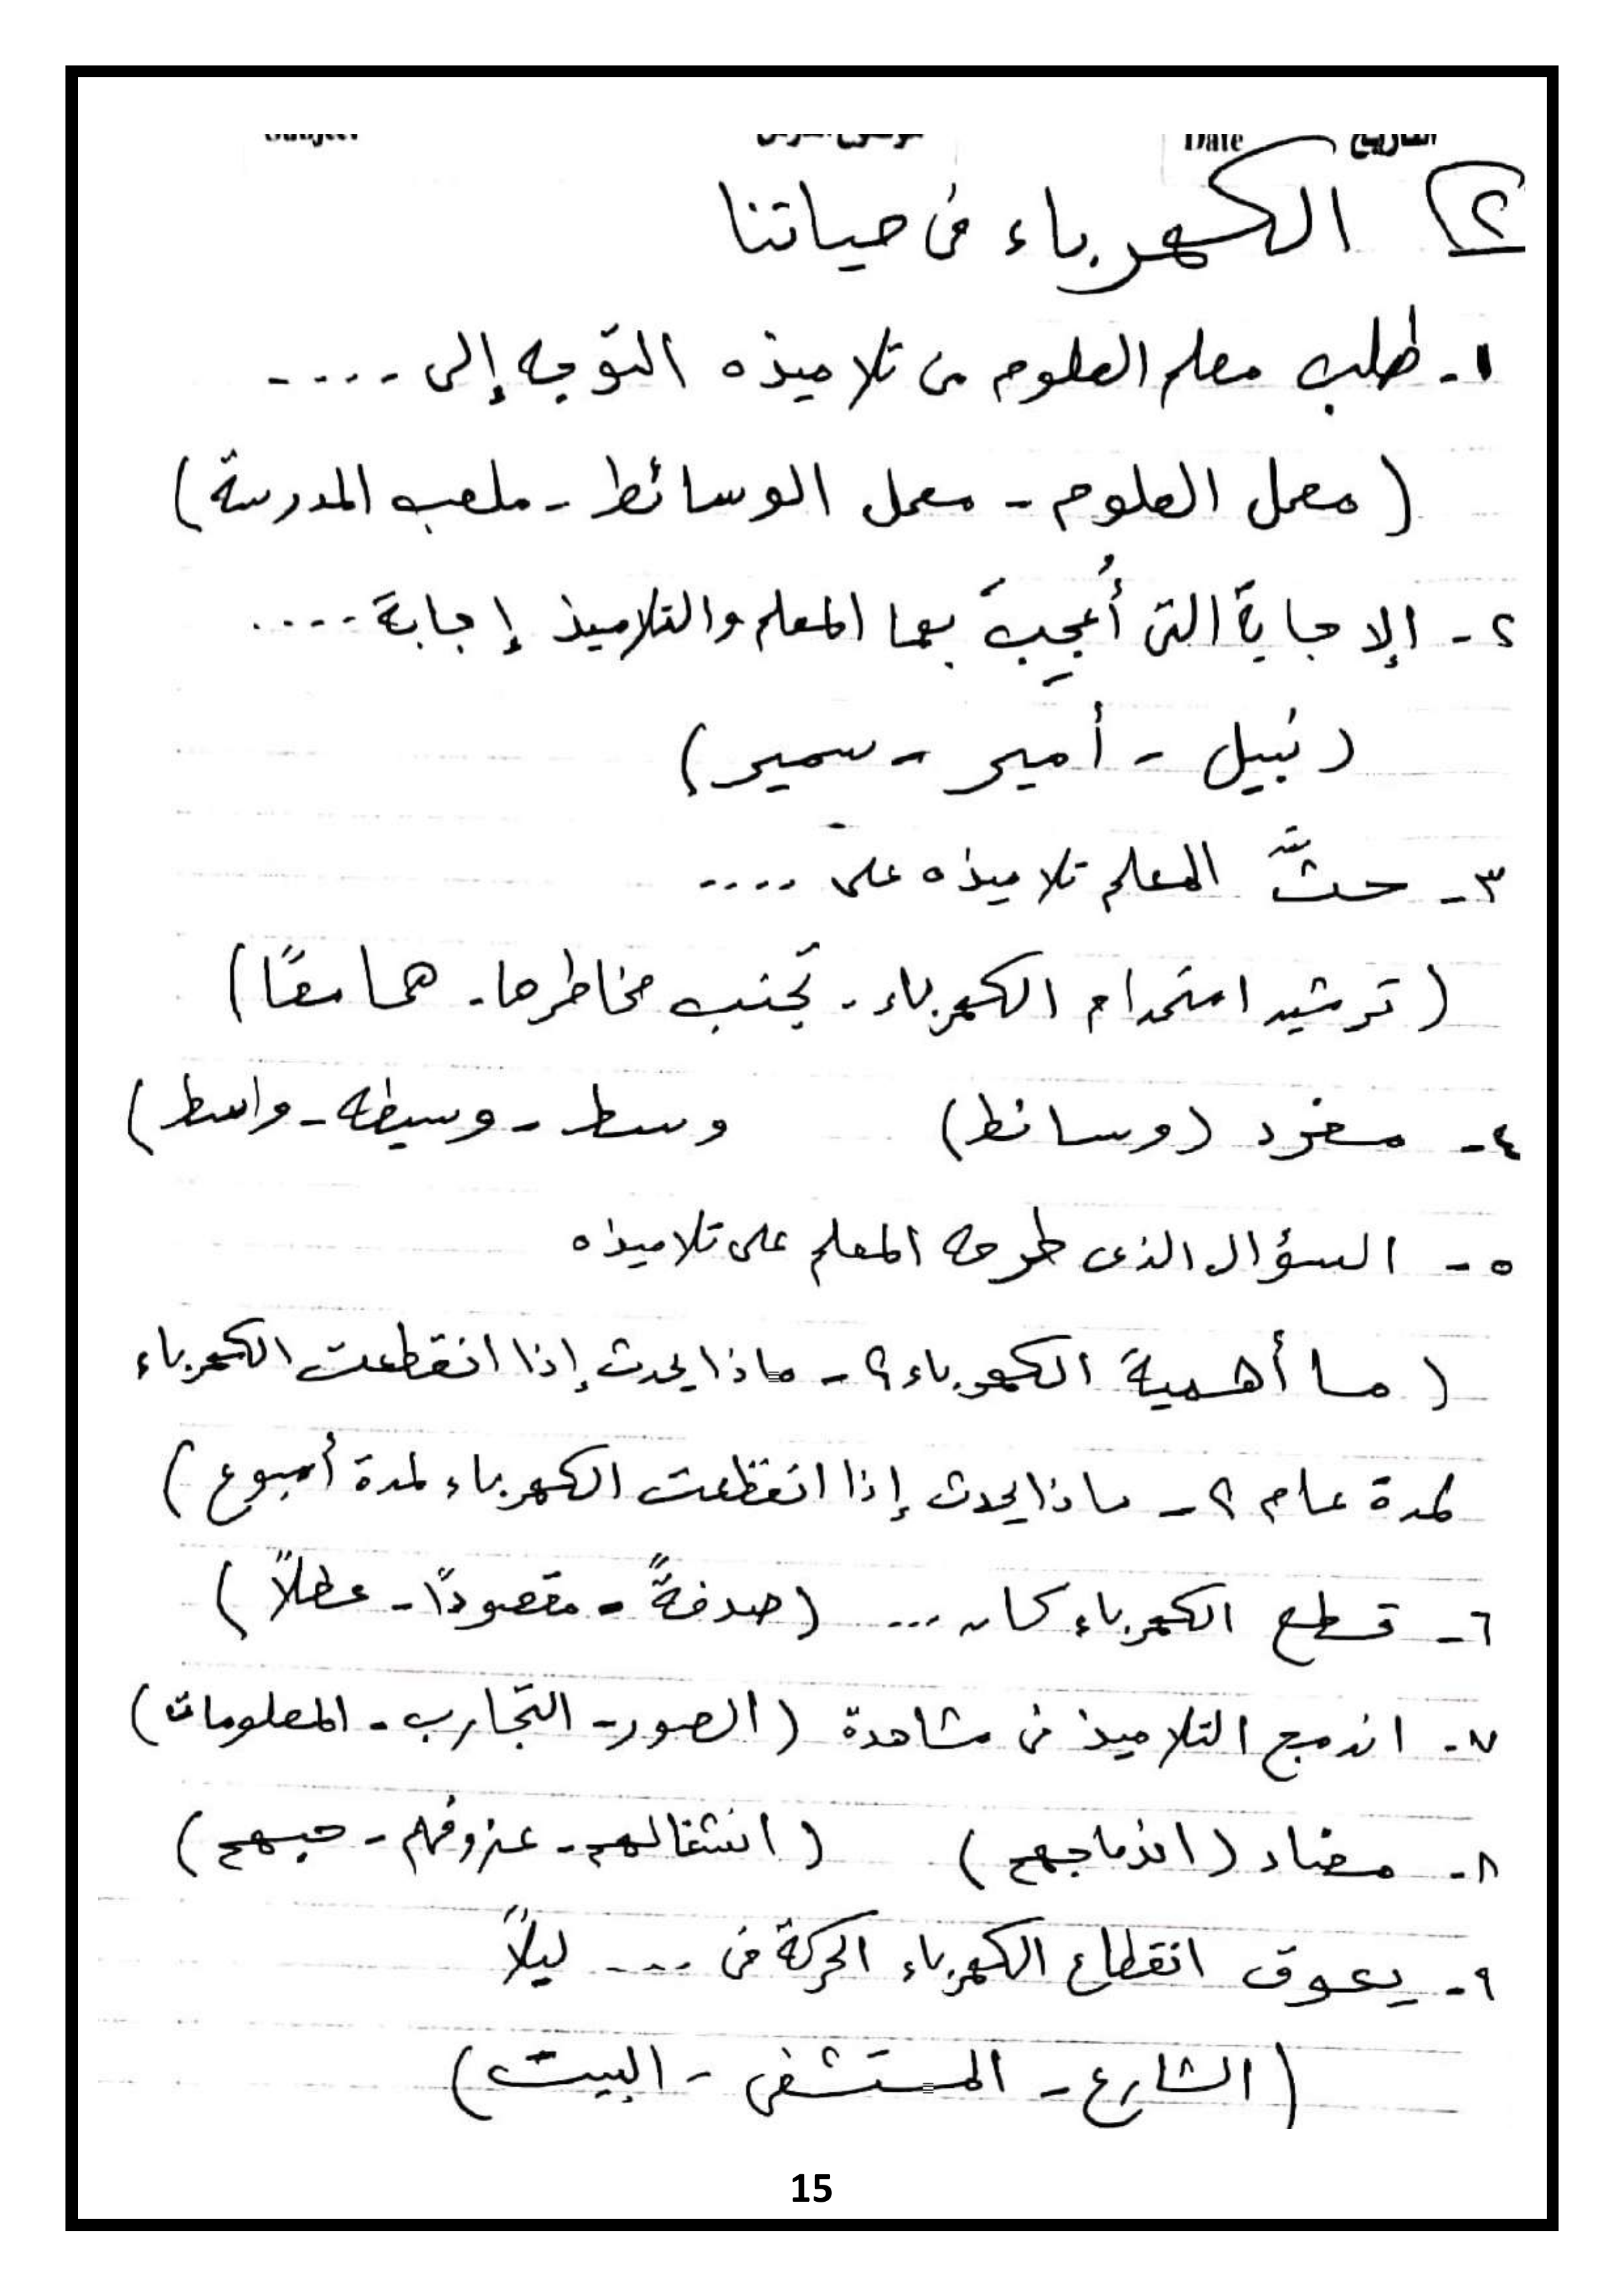 Date
٢ الكهرباء فى حياتنا
١- طلب معلم العلوم من تلاميذه التوجه إلى ....
(معمل العلوم - معمل الوسائط - ملعب المدرسة)
٢- الإجابة التى أُعجِبَ بها المعلم والتلاميذ إجابة ....
(نبيل - أمير - سمير)
٣- حثَّ المعلم تلاميذه على ....
(ترشيد استخدام الكهرباء - تجنب مخاطرها - هما معًا)
٤- مفرد (وسائط) وسط - وسيطه - واسط)
٥- السؤال الذى طرحه المعلم على تلاميذه
(ما أهمية الكهرباء؟ - ماذا يحدث إذا انقطعت الكهرباء
لمدة عام؟ - ماذا يحدث إذا انقطعت الكهرباء لمدة أسبوع)
٦- قطع الكهرباء كان ... (صدفةً - مقصودًا - عطلاً)
٧- اندمج التلاميذ فى مشاهدة (الصور - التجارب - المعلومات)
٨- مضاد (اندماجهم) (انشغالهم - عزوفهم - حبهم)
٩- يعوق انقطاع الكهرباء الحركة فى .... ليلاً
(الشارع - المستشفى - البيت)
15